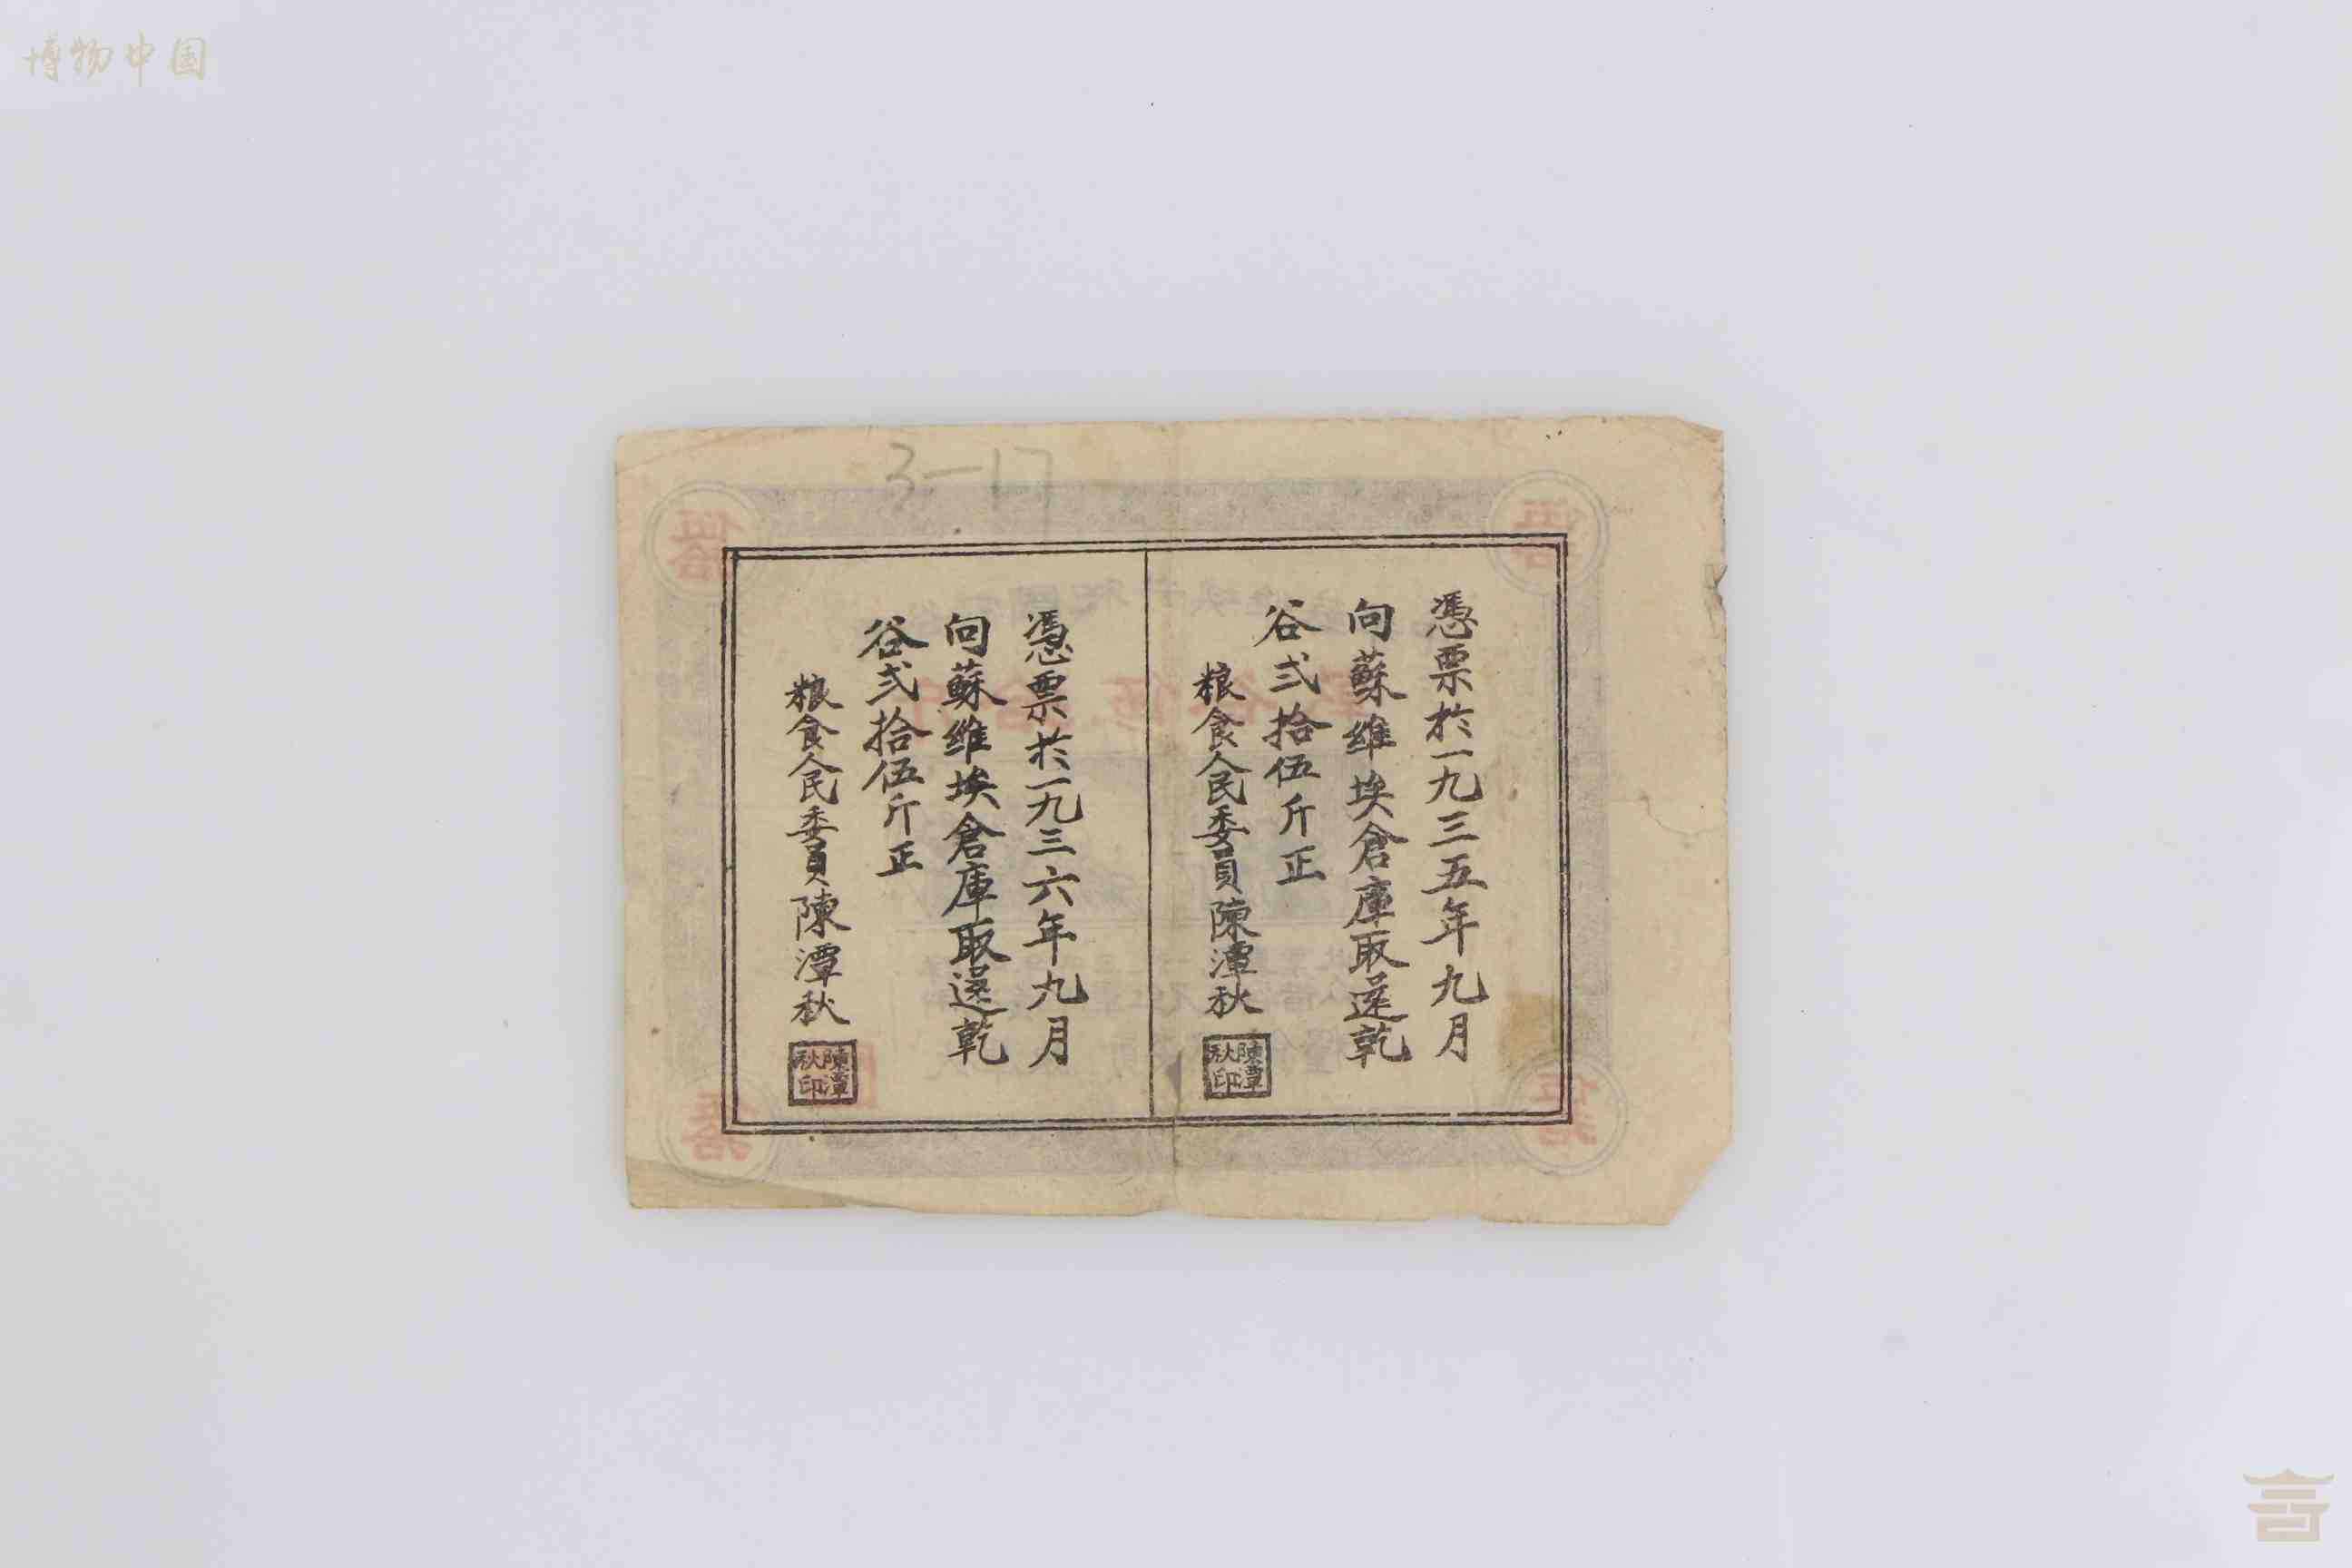 博物中国
3—17
憑票於一九三五年九月
向蘇維埃倉庫取還乾
谷弍拾伍斤正
粮食人民委員陳潭秋
陳潭秋印
憑票於一九三六年九月
向蘇維埃倉庫取還乾
谷弍拾伍斤正
粮食人民委員陳潭秋
陳潭秋印